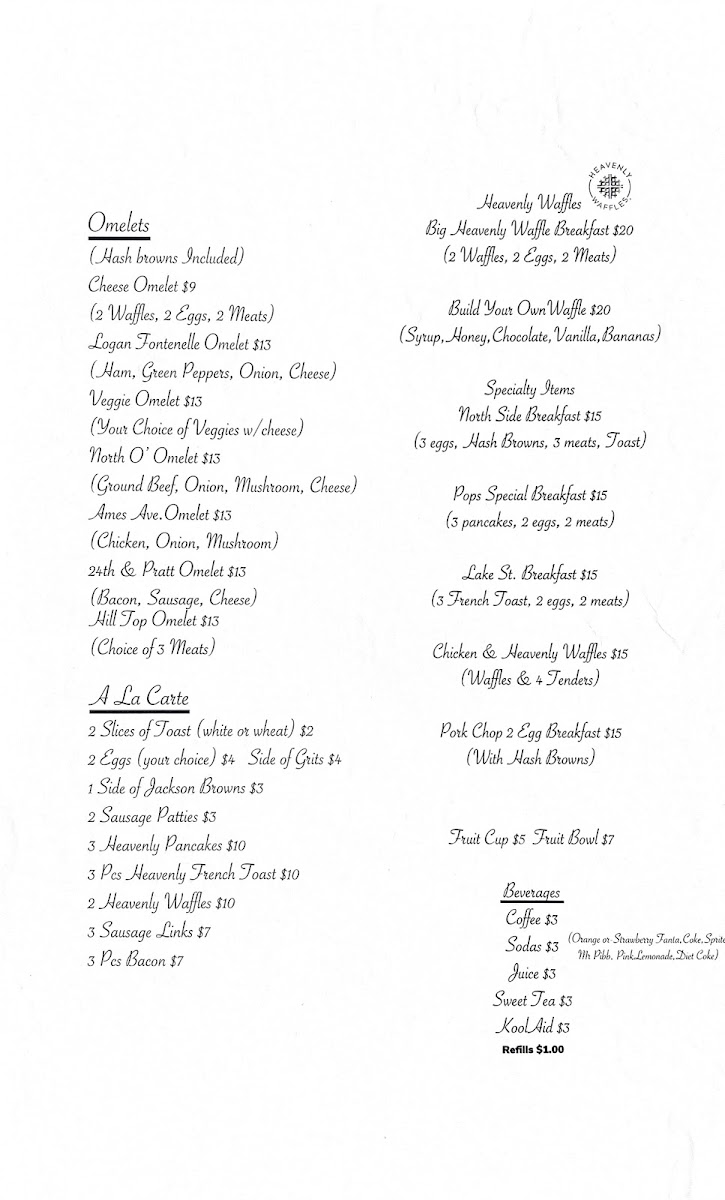 Omelets
(Hash browns Included)
Cheese Omelet $9
(2 Waffles, 2 Eggs, 2 Meats)
Logan Fontenelle Omelet $13
(Ham, Green Peppers, Onion, Cheese)
Veggie Omelet $13
(Your Choice of Veggies w/cheese)
North O' Omelet $13
(Ground Beef, Onion, Mushroom, Cheese)
Ames Ave.Omelet $13
(Chicken, Onion, Mushroom)
24th & Pratt Omelet $13
(Bacon, Sausage, Cheese)
Hill Top Omelet $13
(Choice of 3 Meats)
A La Carte
2 Slices of Toast (white or wheat) $2
2 Eggs (your choice) $4 Side of Grits $4
1 Side of Jackson Browns $3
2 Sausage Patties $3
3 Heavenly Pancakes $10
3 Pcs Heavenly French Toast $10
2 Heavenly Waffles $10
3 Sausage Links $7
3 Pcs Bacon $7
HEAVENLY WAFFLES
Heavenly Waffles
Big Heavenly Waffle Breakfast $20
(2 Waffles, 2 Eggs, 2 Meats)
Build Your OwnWaffle $20
(Syrup,Honey,Chocolate,Vanilla,Bananas)
Specialty Items
North Side Breakfast $15
(3 eggs, Hash Browns, 3 meats, Toast)
Pops Special Breakfast $15
(3 pancakes, 2 eggs, 2 meats)
Lake St. Breakfast $15
(3 French Toast, 2 eggs, 2 meats)
Chicken & Heavenly Waffles $15
(Waffles & 4 Tenders)
Pork Chop 2 Egg Breakfast $15
(With Hash Browns)
Fruit Cup $5 Fruit Bowl $7
Beverages
Coffee $3
Sodas $3
(Orange or Strawberry Fanta,Coke,Sprite
Mr Pibb, PinkLemonade,Diet Coke)
Juice $3
Sweet Tea $3
KoolAid $3
Refills $1.00